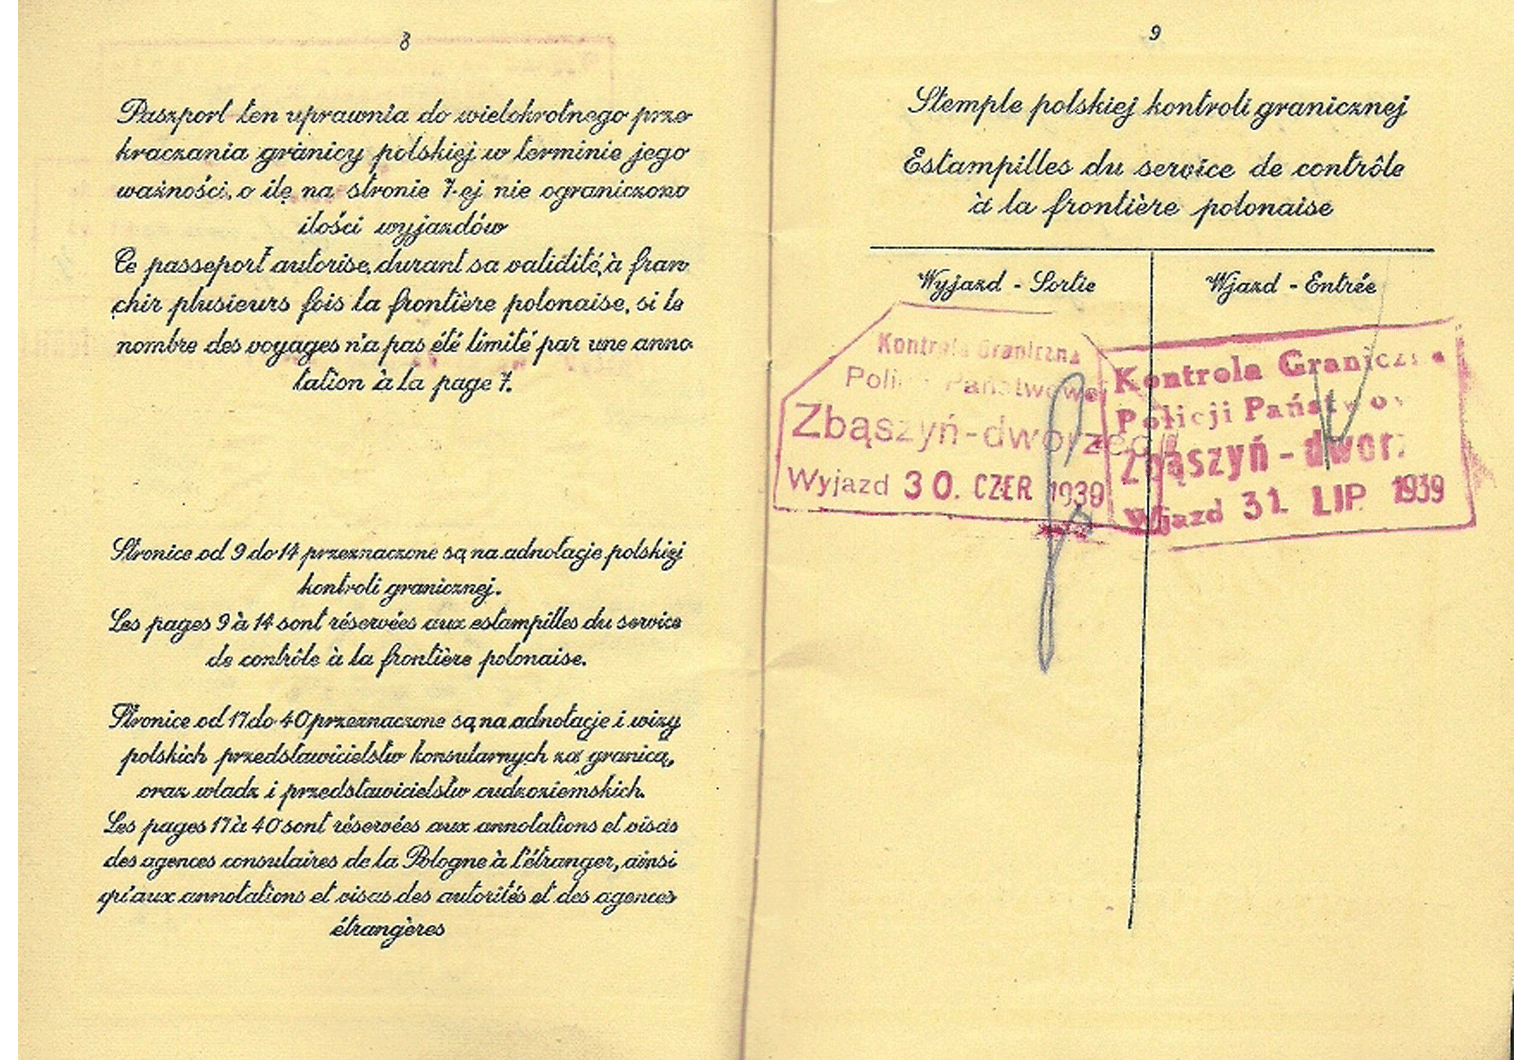 8
Paszport ten uprawnia do wielokrotnego prze-
kraczania granicy polskiej w terminie jego
ważności, o ile na stronie 7-ej nie ograniczono
ilości wyjazdów
Ce passeport autorise, durant sa validité, à fran-
chir plusieurs fois la frontière polonaise, si le
nombre des voyages n'a pas été limité par une anno-
tation à la page 7.
Stronice od 9 do 14 przeznaczone są na adnotacje polskiej
kontroli granicznej.
Les pages 9 à 14 sont réservées aux estampilles du service
de contrôle à la frontière polonaise.
Stronice od 17 do 40 przeznaczone są na adnotacje i wizy
polskich przedstawicielstw konsularnych za granicą,
oraz władz i przedstawicielstw cudzoziemskich.
Les pages 17 à 40 sont réservées aux annotations et visas
des agences consulaires de la Pologne à l'étranger, ainsi
qu'aux annotations et visas des autorités et des agences
étrangères
9
Stemple polskiej kontroli granicznej
Estampilles du service de contrôle
à la frontière polonaise
Wyjazd - Sortie
Wjazd - Entrée
Kontrola Graniczna
Policji Państwowej
Zbąszyń-dworzec
Wyjazd 30. CZER 1939
Kontrola Graniczna
Policji Państwow
Zbąszyń - dworz
Wjazd 31. LIP. 1939